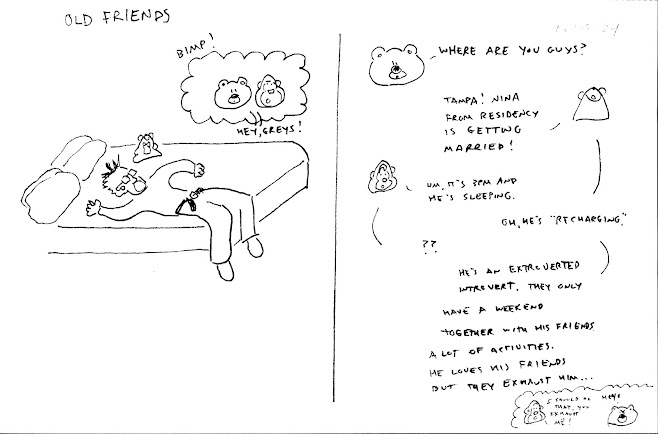 OLD FRIENDS
BIMP!
HEY, GREYS!
WHERE ARE YOU GUYS?
TAMPA! NINA
FROM RESIDENCY
IS GETTING
MARRIED!
UM, IT'S 3PM AND
HE'S SLEEPING.
OH, HE'S "RECHARGING."
??
HE'S AN EXTROVERTED
INTROVERT. THEY ONLY
HAVE A WEEKEND
TOGETHER WITH HIS FRIENDS
A LOT OF ACTIVITIES.
HE LOVES HIS FRIENDS
BUT THEY EXHAUST HIM...
I SHOULD DO
THAT, YOU
EXHAUST
ME!
HEY!